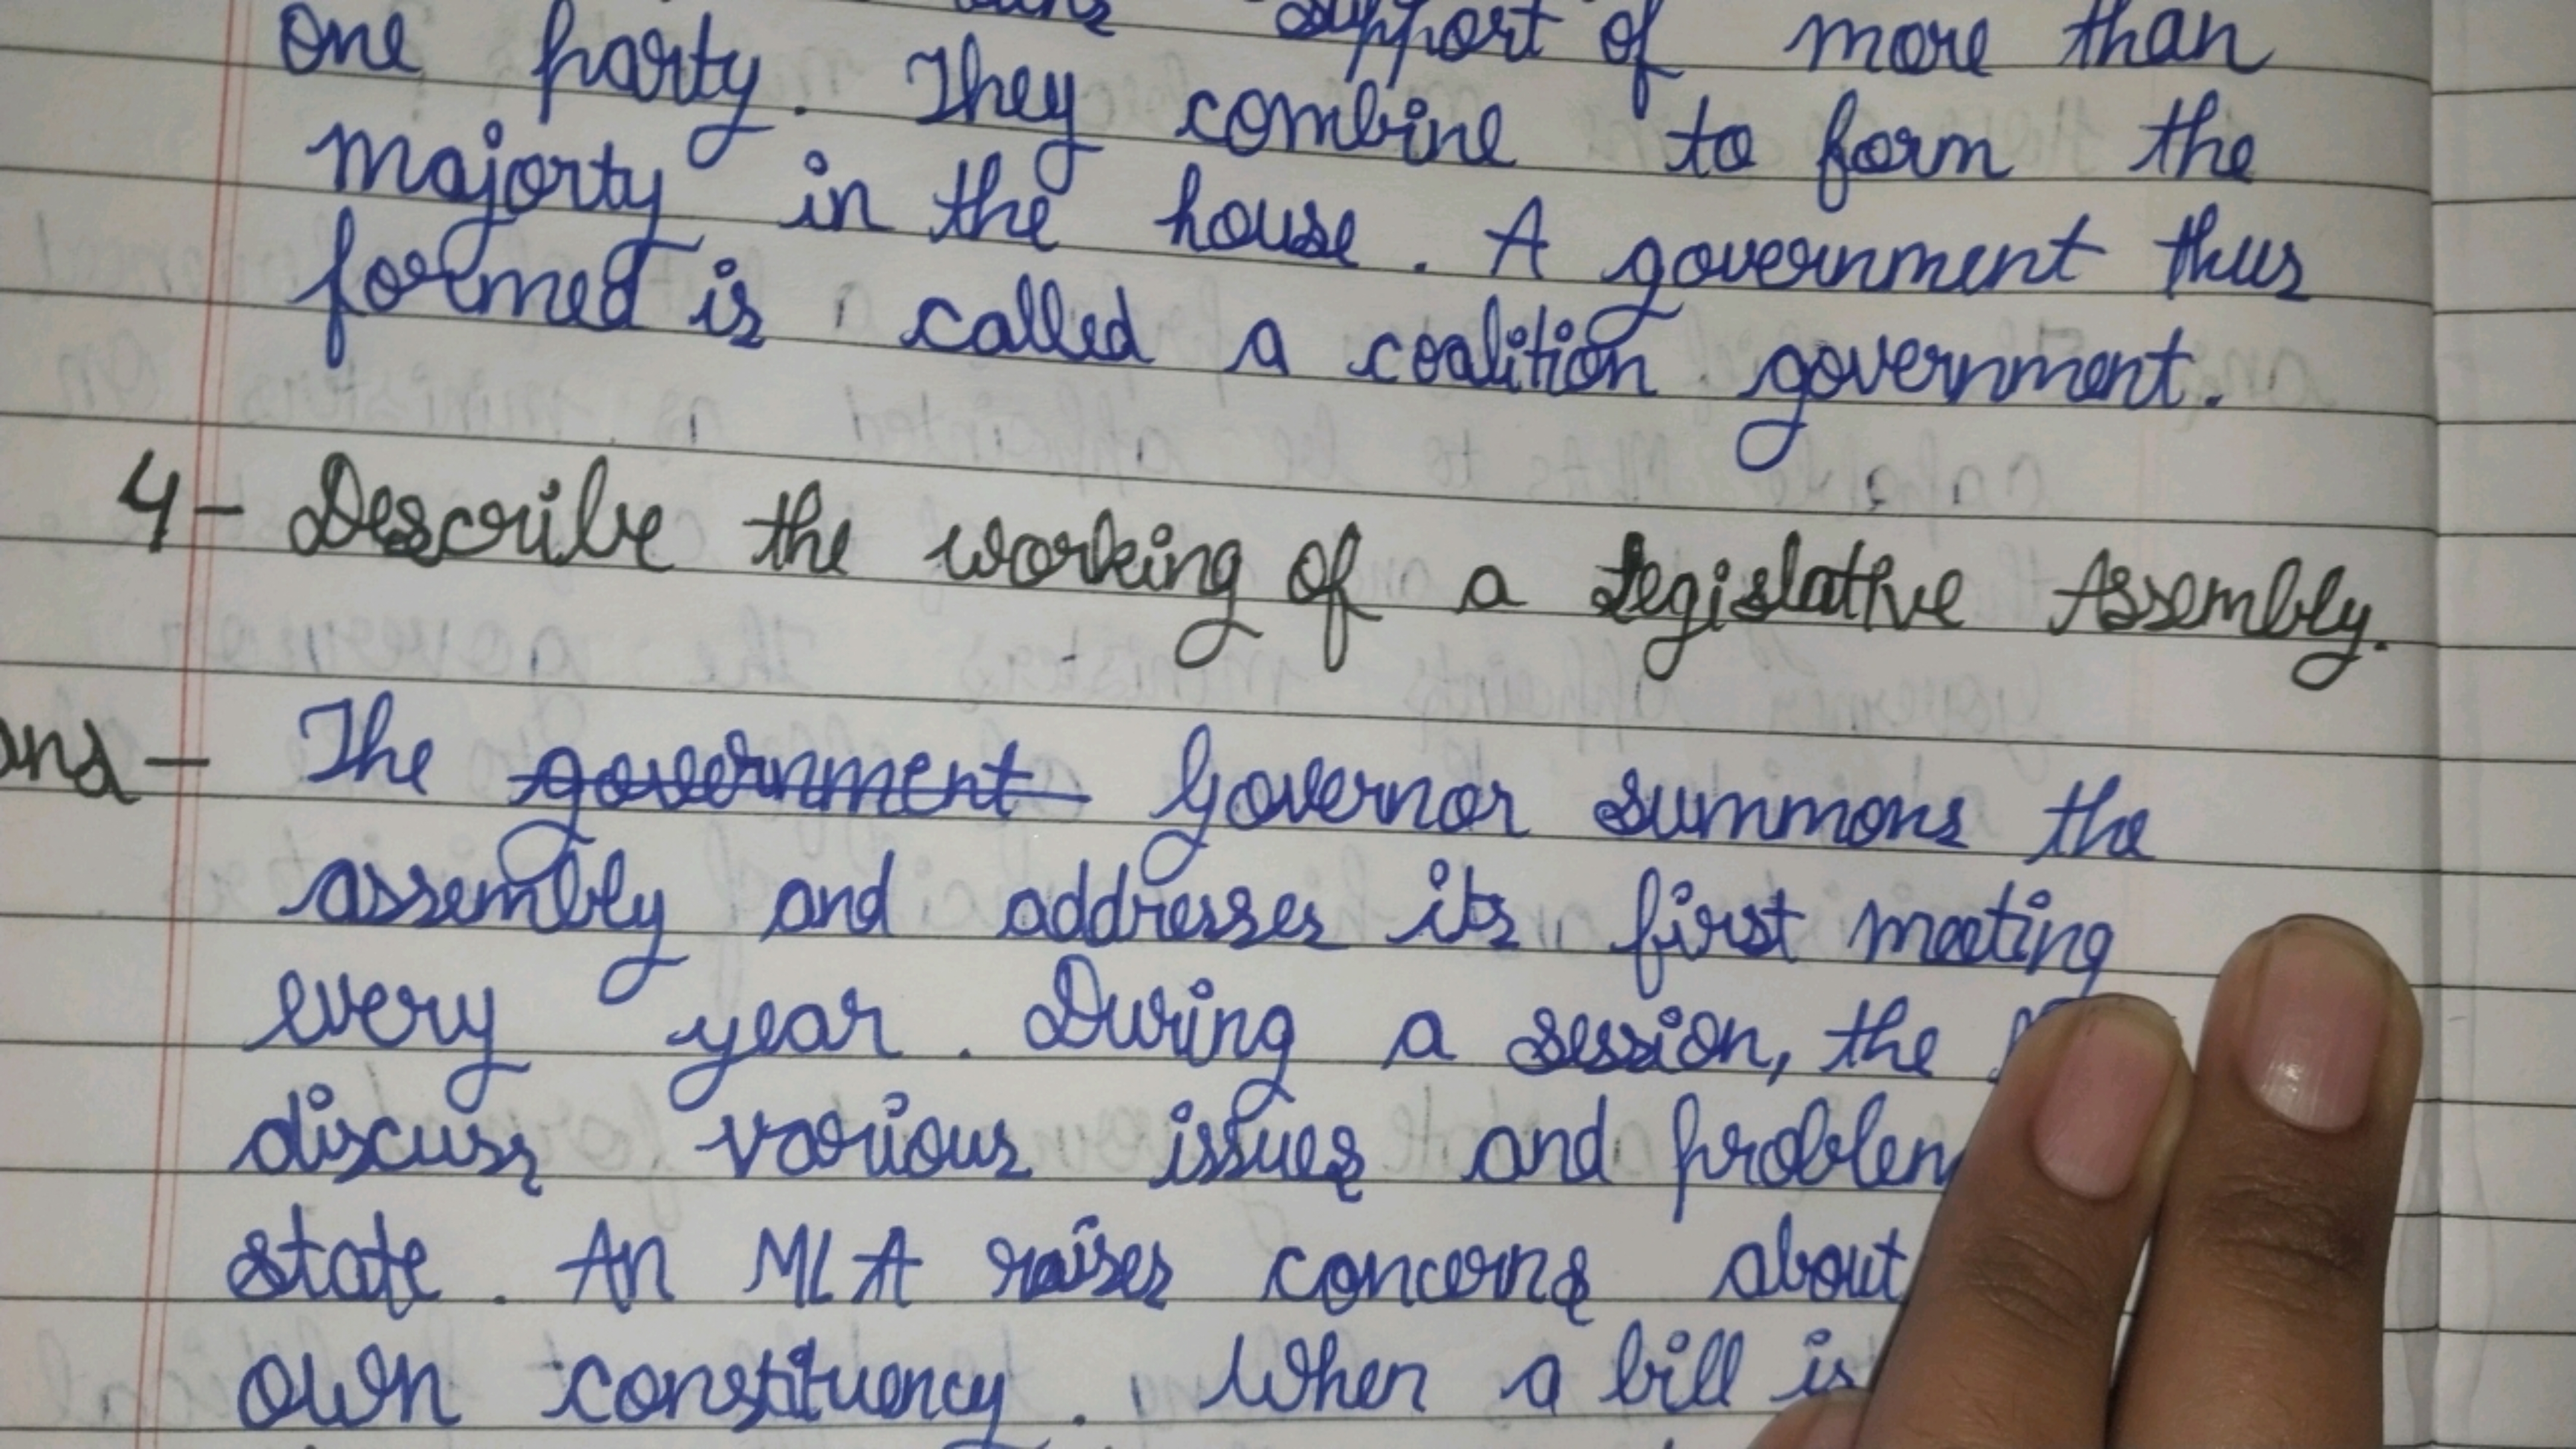 support of more than
one party. They combine to form the
majorty in the house. A government thus
formed is called a coalition government.
4- Describe the working of a Legislative Assembly.
ans- The government Governor summons the
assembly and addresses its first meeting
every year. During a session, the
discuss various issues and problem
state. An MLA raises concerns about
own constituency. When a bill is